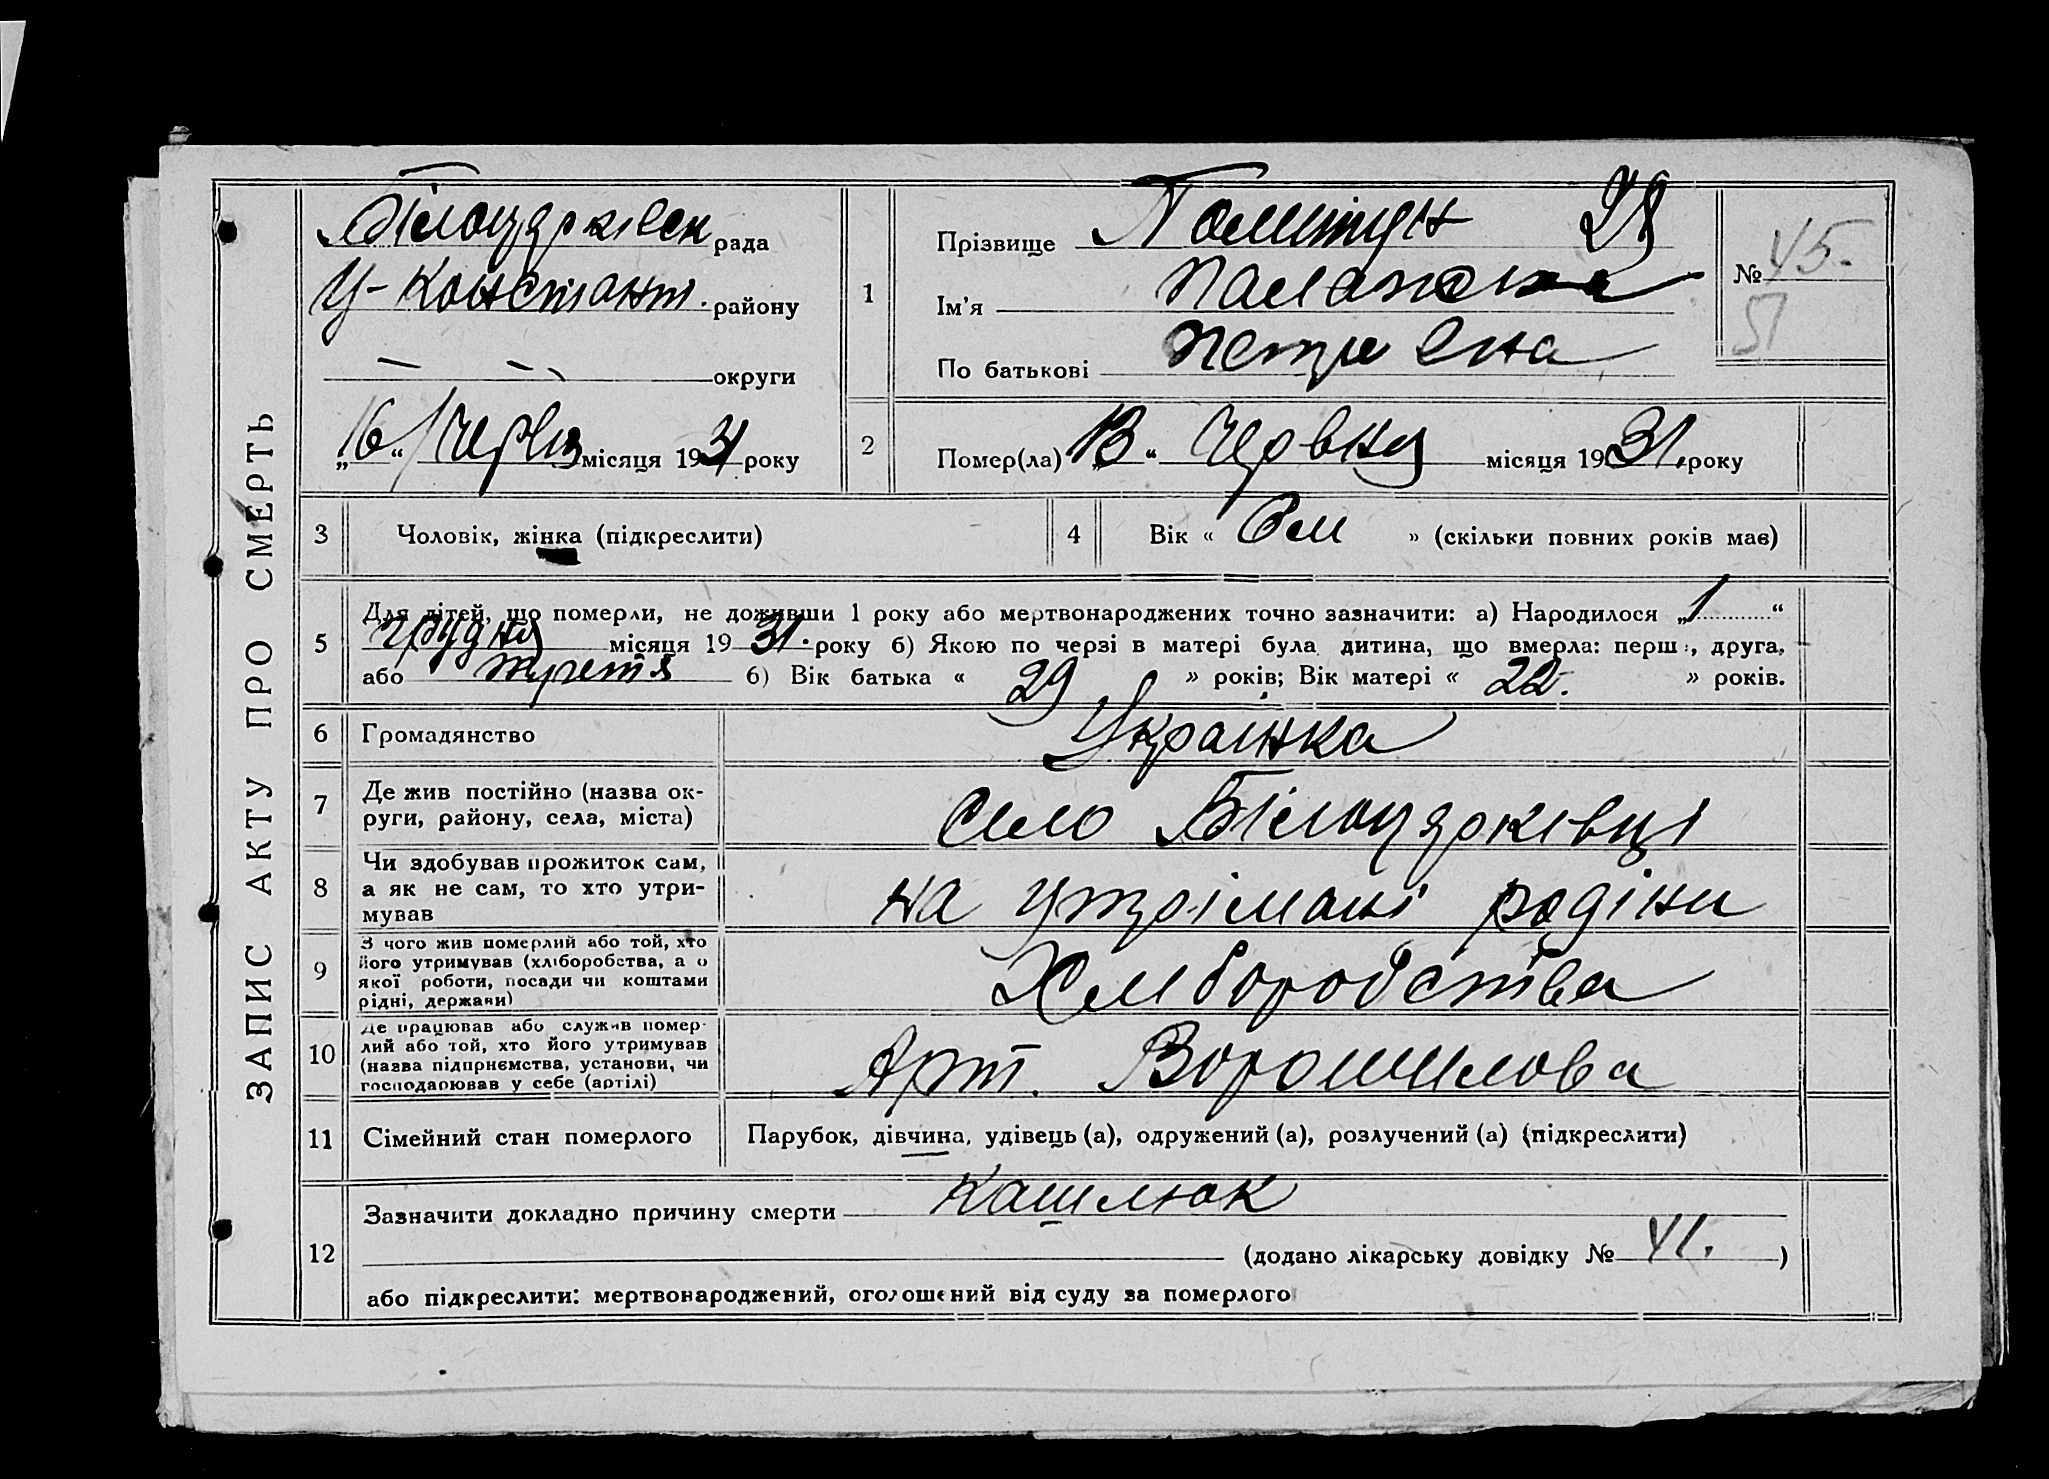 ЗАПИС АКТУ ПРО СМЕРТЬ
Білоцерківск рада
У-Констант. району
округи
„16“ Червня місяця 1931 року
1
Прізвище
Ім'я
По батькові Петрівна
№ 45.
51
2
Помер(ла) „13“ Червня місяця 1931. року
3 Чоловік, жінка (підкреслити)
4 Вік « 6 м » (скільки повних років має)
5
Для дітей, що померли, не доживши 1 року або мертвонароджених точно зазначити: а) Народилося „1“
грудня місяця 1931. року б) Якою по черзі в матері була дитина, що вмерла: перш, друга,
або третя б) Вік батька « 29 » років; Вік матері « 22. » років.
6 Громадянство Українка
7 Де жив постійно (назва ок-
руги, району, села, міста)
село Білоцерківці
8 Чи здобував прожиток сам,
а як не сам, то хто утри-
мував
на утрімані родіни
9 З чого жив померлий або той, хто
його утримував (хліборобства, а о
якої роботи, посади чи коштами
рідні, держави)
Хліборобства
10 Де працював або служив помер-
лий або той, хто його утримував
(назва підприємства, установи, чи
господарював у себе (артілі)
Арт. Ворошилова
11 Сімейний стан померлого Парубок, дівчина, удівець (а), одружений (а), розлучений (а) (підкреслити)
12
Зазначити докладно причину смерти Кашлюк
(додано лікарську довідку № 41. )
або підкреслити: мертвонароджений, оголошений від суду за померлого